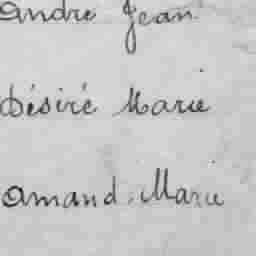 andré Jean
Désiré Marie
amand. Marie